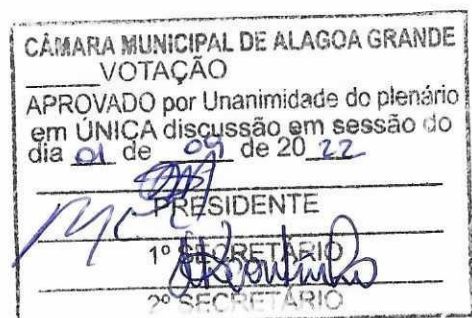 CÂMARA MUNICIPAL DE ALAGOA GRANDE
VOTAÇÃO
APROVADO por Unanimidade do plenário
em ÚNICA discussão em sessão do
dia 01 de 09 de 20 22
PRESIDENTE
1º SECRETÁRIO
2º SECRETÁRIO